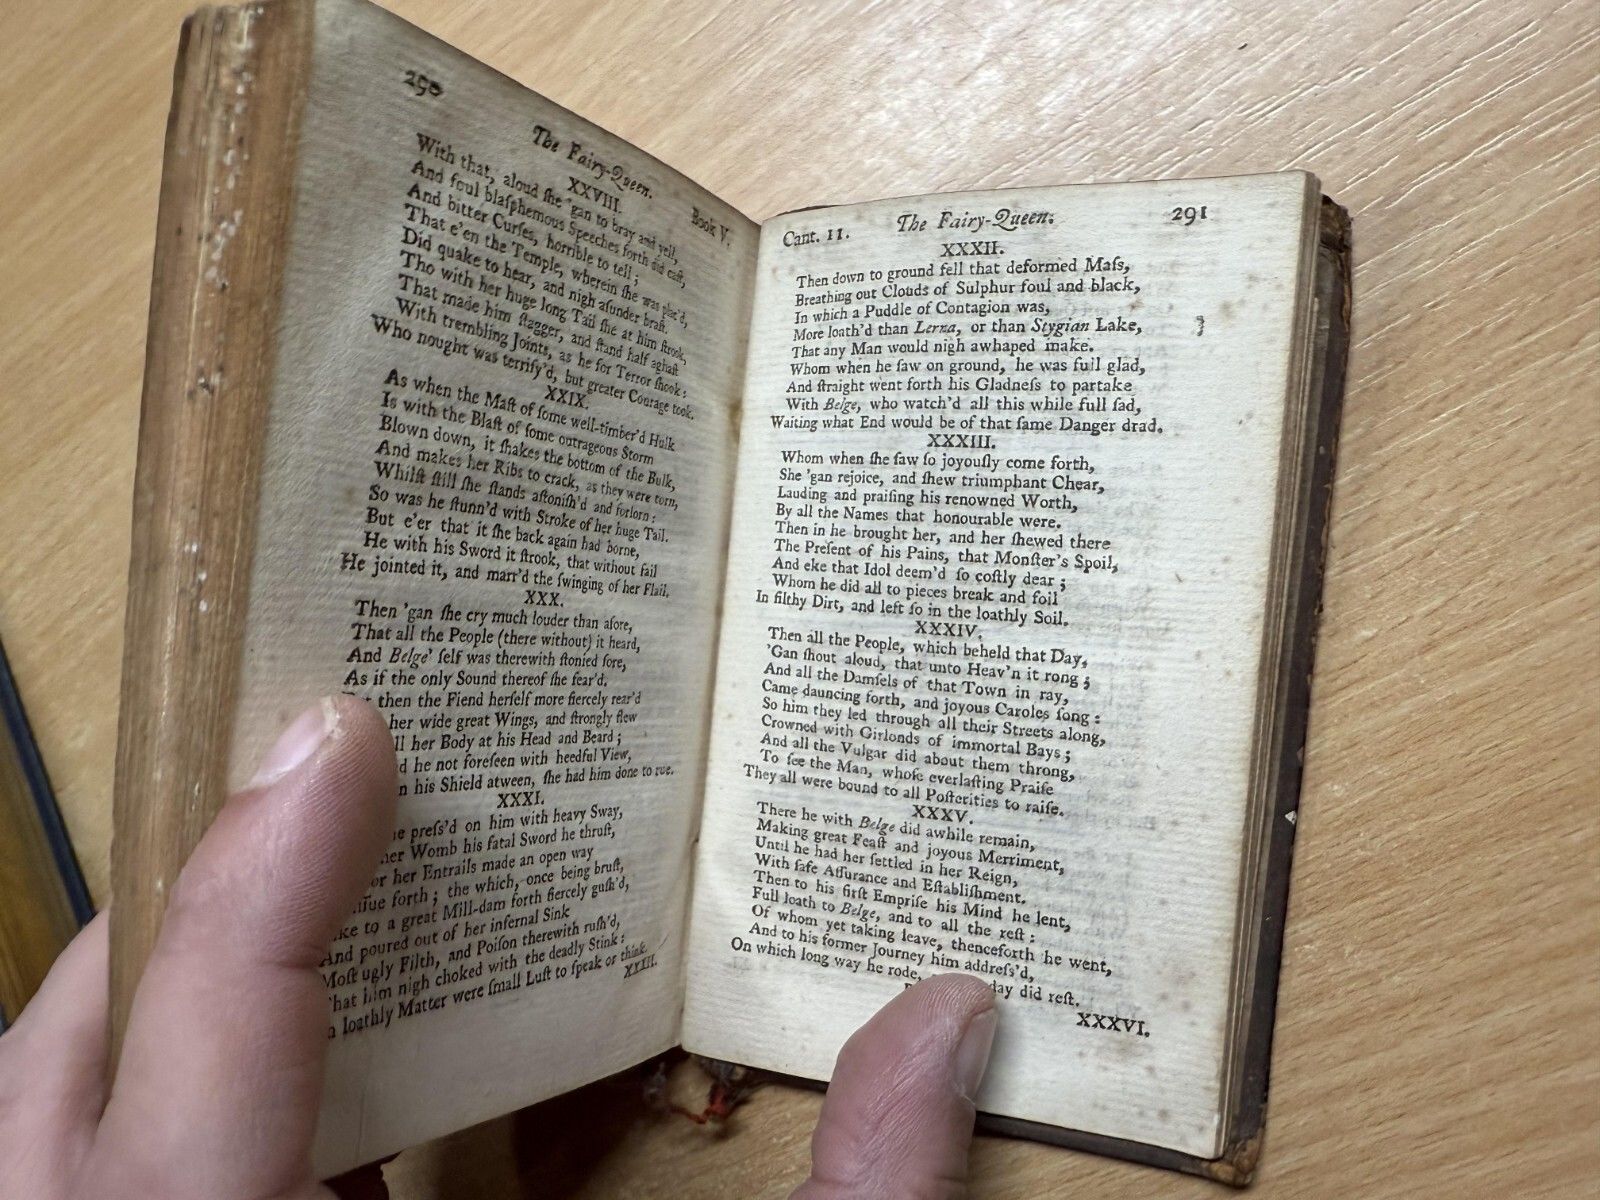 290
The Fairy-Queen.
Book V.
XXVIII.
With that, aloud ſhe 'gan to bray and yell,
And foul blaſphemous Speeches forth did caſt,
And bitter Curſes, horrible to tell;
That e'en the Temple, wherein ſhe was plac'd,
Did quake to hear, and nigh aſunder braſt.
Tho with her huge long Tail ſhe at him ſtrook,
That made him ſtagger, and ſtand half aghaſt
With trembling Joints, as he for Terror ſhook:
Who nought was terrify'd, but greater Courage took.
XXIX.
As when the Maſt of ſome well-timber'd Hulk
Is with the Blaſt of ſome outrageous Storm
Blown down, it ſhakes the bottom of the Bulk,
And makes her Ribs to crack, as they were torn,
Whilſt ſtill ſhe ſtands aſtoniſh'd and forlorn:
So was he ſtunn'd with Stroke of her huge Tail.
But e'er that it ſhe back again had borne,
He with his Sword it ſtrook, that without fail
He jointed it, and marr'd the ſwinging of her Flail.
XXX.
Then 'gan ſhe cry much louder than afore,
That all the People (there without) it heard,
And Belge' ſelf was therewith ſtonied ſore,
As if the only Sound thereof ſhe fear'd.
then the Fiend herſelf more fiercely rear'd
her wide great Wings, and ſtrongly flew
her Body at his Head and Beard;
he not foreſeen with heedful View,
his Shield atween, ſhe had him done to rue.
XXXI.
preſs'd on him with heavy Sway,
her Womb his fatal Sword he thruſt,
her Entrails made an open way
forth; the which, once being bruſt,
to a great Mill-dam forth fiercely guſh'd,
And poured out of her infernal Sink
Moſt ugly Filth, and Poiſon therewith ruſh'd,
That him nigh choked with the deadly Stink:
loathly Matter were ſmall Luſt to ſpeak or think.
XXXII.
Cant. 11.
The Fairy-Queen:
291
XXXII.
Then down to ground fell that deformed Maſs,
Breathing out Clouds of Sulphur foul and black,
In which a Puddle of Contagion was,
More loath'd than Lerna, or than Stygian Lake,
That any Man would nigh awhaped make.
Whom when he ſaw on ground, he was full glad,
And ſtraight went forth his Gladneſs to partake
With Belge, who watch'd all this while full ſad,
Waiting what End would be of that ſame Danger drad.
XXXIII.
Whom when ſhe ſaw ſo joyouſly come forth,
She 'gan rejoice, and ſhew triumphant Chear,
Lauding and praiſing his renowned Worth,
By all the Names that honourable were.
Then in he brought her, and her ſhewed there
The Preſent of his Pains, that Monſter's Spoil,
And eke that Idol deem'd ſo coſtly dear;
Whom he did all to pieces break and foil
In filthy Dirt, and left ſo in the loathly Soil.
XXXIV.
Then all the People, which beheld that Day,
'Gan ſhout aloud, that unto Heav'n it rong;
And all the Damſels of that Town in ray,
Came dauncing forth, and joyous Caroles ſong:
So him they led through all their Streets along,
Crowned with Girlonds of immortal Bays;
And all the Vulgar did about them throng,
To ſee the Man, whoſe everlaſting Praiſe
They all were bound to all Poſterities to raiſe.
XXXV.
There he with Belge did awhile remain,
Making great Feaſt and joyous Merriment,
Until he had her ſettled in her Reign,
With ſafe Aſſurance and Eſtabliſhment.
Then to his firſt Empriſe his Mind he lent,
Full loath to Belge, and to all the reſt:
Of whom yet taking leave, thenceforth he went,
And to his former Journey him addreſs'd,
On which long way he rode, day did reſt.
XXXVI.